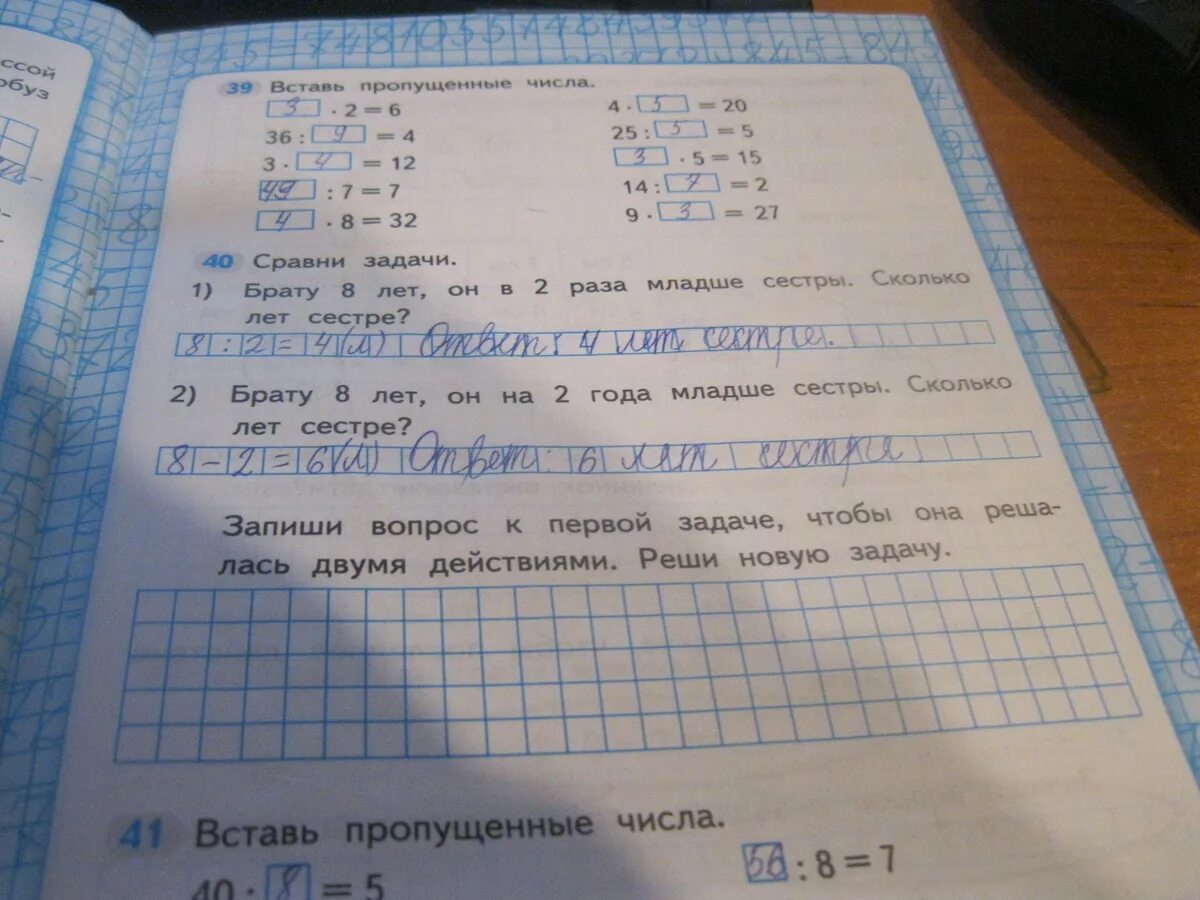 845=7481055748
845 843
ссой
обуз
39 Вставь пропущенные числа.
3 · 2 = 6 4 · 5 = 20
36 : 9 = 4 25 : 5 = 5
3 · 4 = 12 3 · 5 = 15
49 : 7 = 7 14 : 7 = 2
4 · 8 = 32 9 · 3 = 27
40 Сравни задачи.
1) Брату 8 лет, он в 2 раза младше сестры. Сколько
лет сестре?
8 : 2 = 4 (л) Ответ: 4 лет сестре.
2) Брату 8 лет, он на 2 года младше сестры. Сколько
лет сестре?
8 - 2 = 6 (л) Ответ: 6 лет сестри
Запиши вопрос к первой задаче, чтобы она реша-
лась двумя действиями. Реши новую задачу.
41 Вставь пропущенные числа.
40 : 8 = 5 56 : 8 = 7